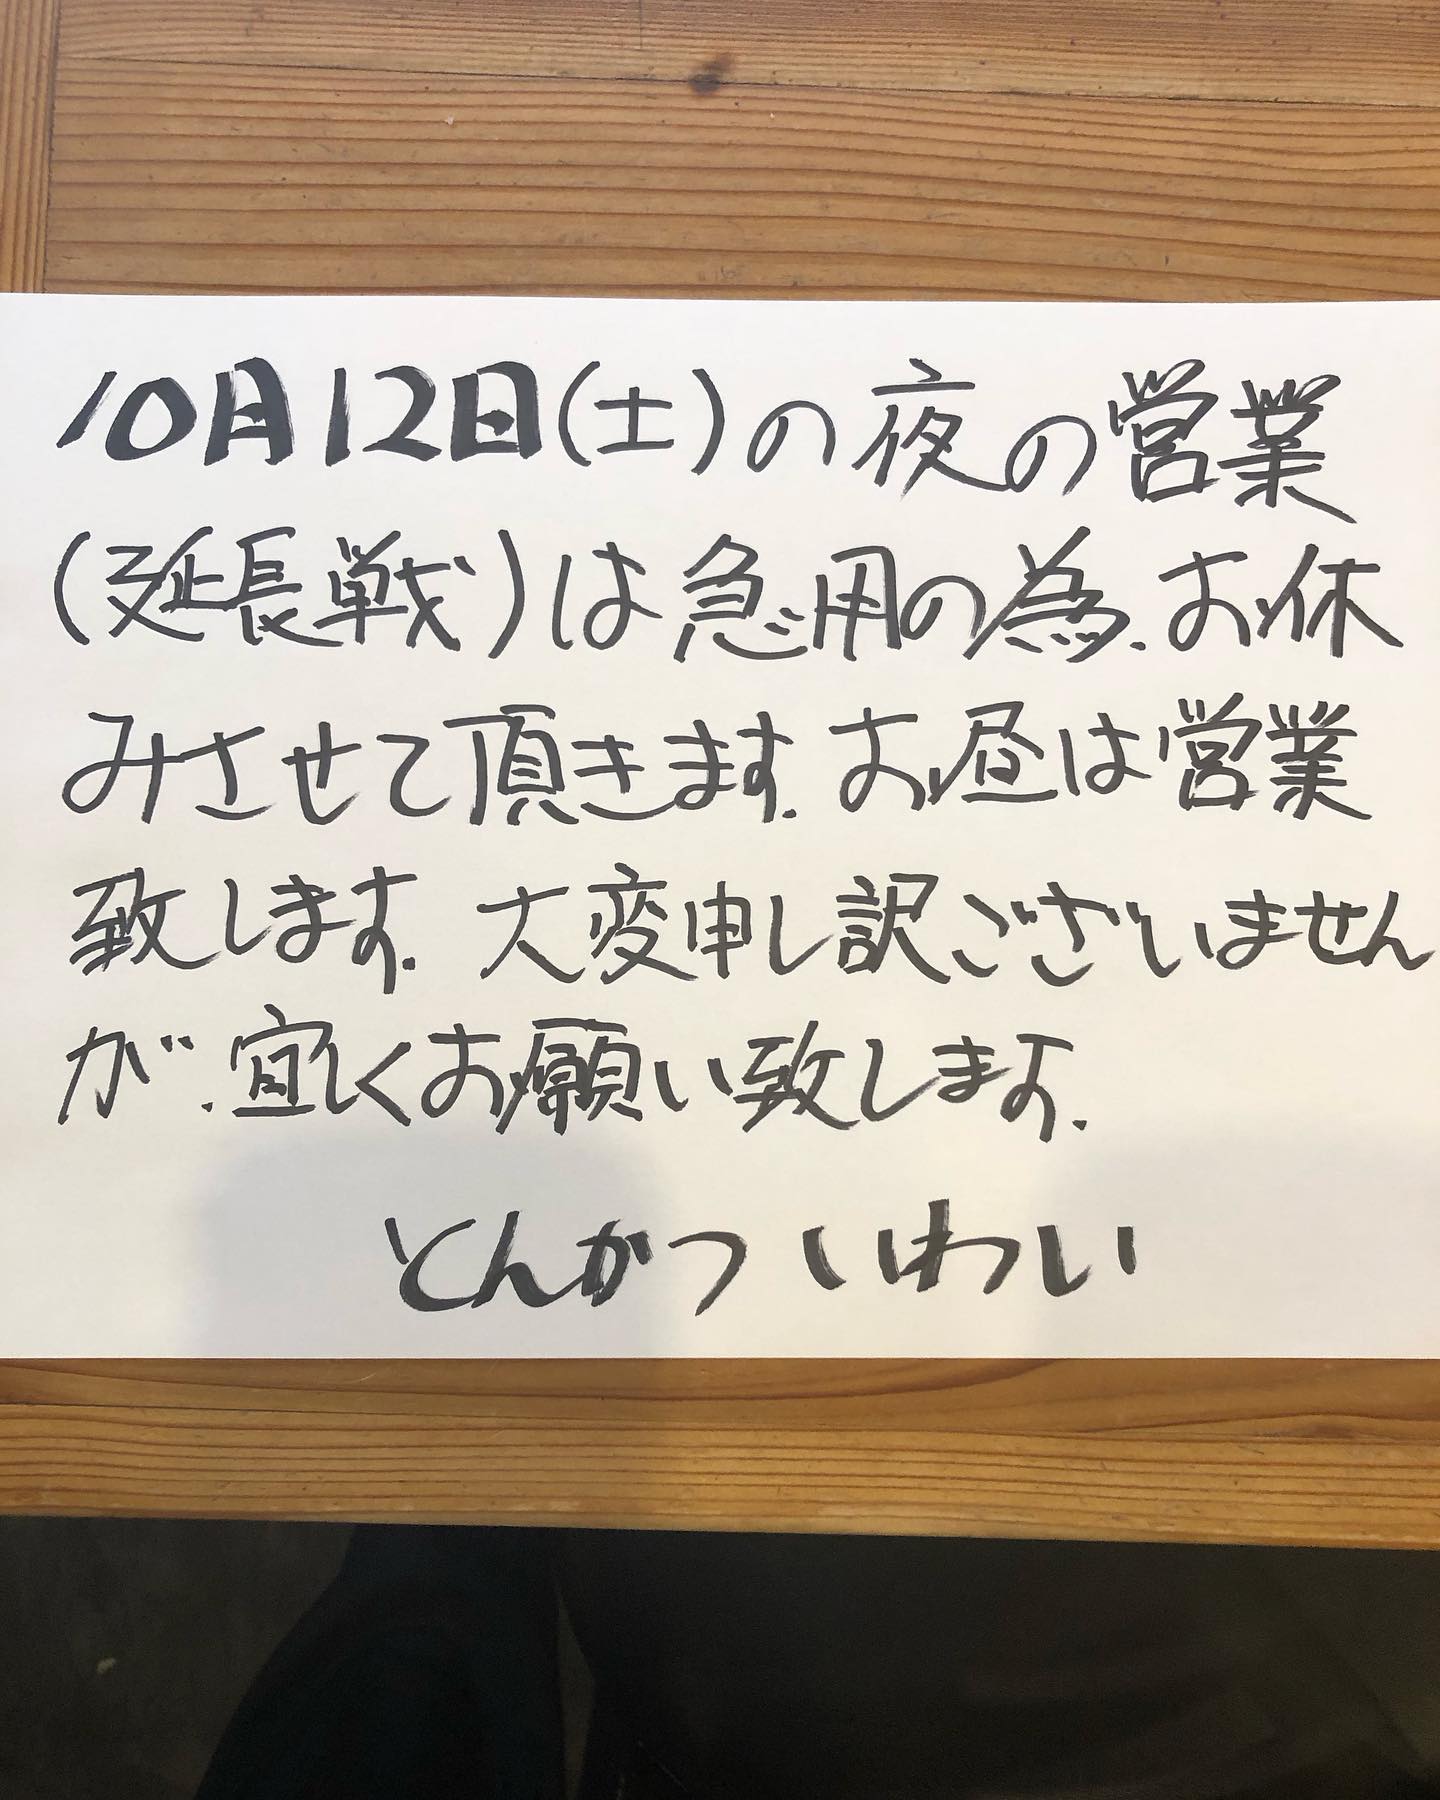 10月12日(土)の夜の営業
(延長戦)は急用の為、お休
みさせて頂きます。お昼は営業
致します。大変申し訳ございません
が、宜しくお願い致します。
とんかつ いわい